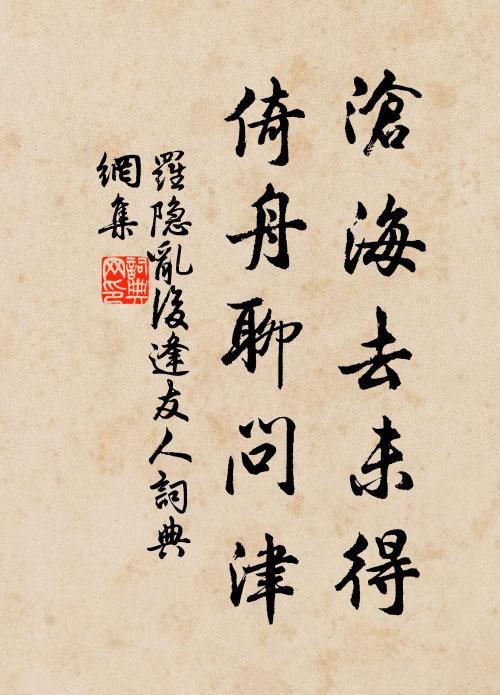 滄海去未得
倚舟聊問津
羅隐亂後逢友人詞典
網集
詞典網印